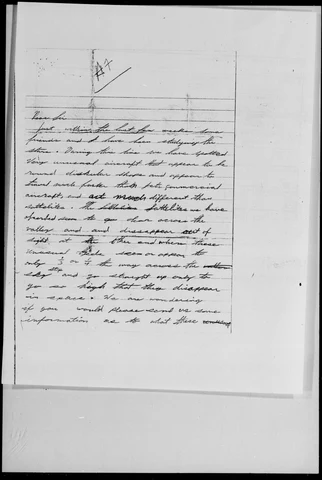 A7
Dear Sir
Just within the last few weeks some
friends and I have been studying the
stars. During this time we have spotted
very unusual aircraft that appear to be
round disk shape and appear to
travel much faster than both commercial
aircraft, and act much different than
satellites. The satellites we have
spotted seem to go slow across the
valley and and dissapear out of
sight at the other end where these
unusual seen or appear to
only 1/3 or ½ the way across the
stop and go straight up only to
go so high that they disappear
in space. We are wondering
if you would please send us some
information as to what these